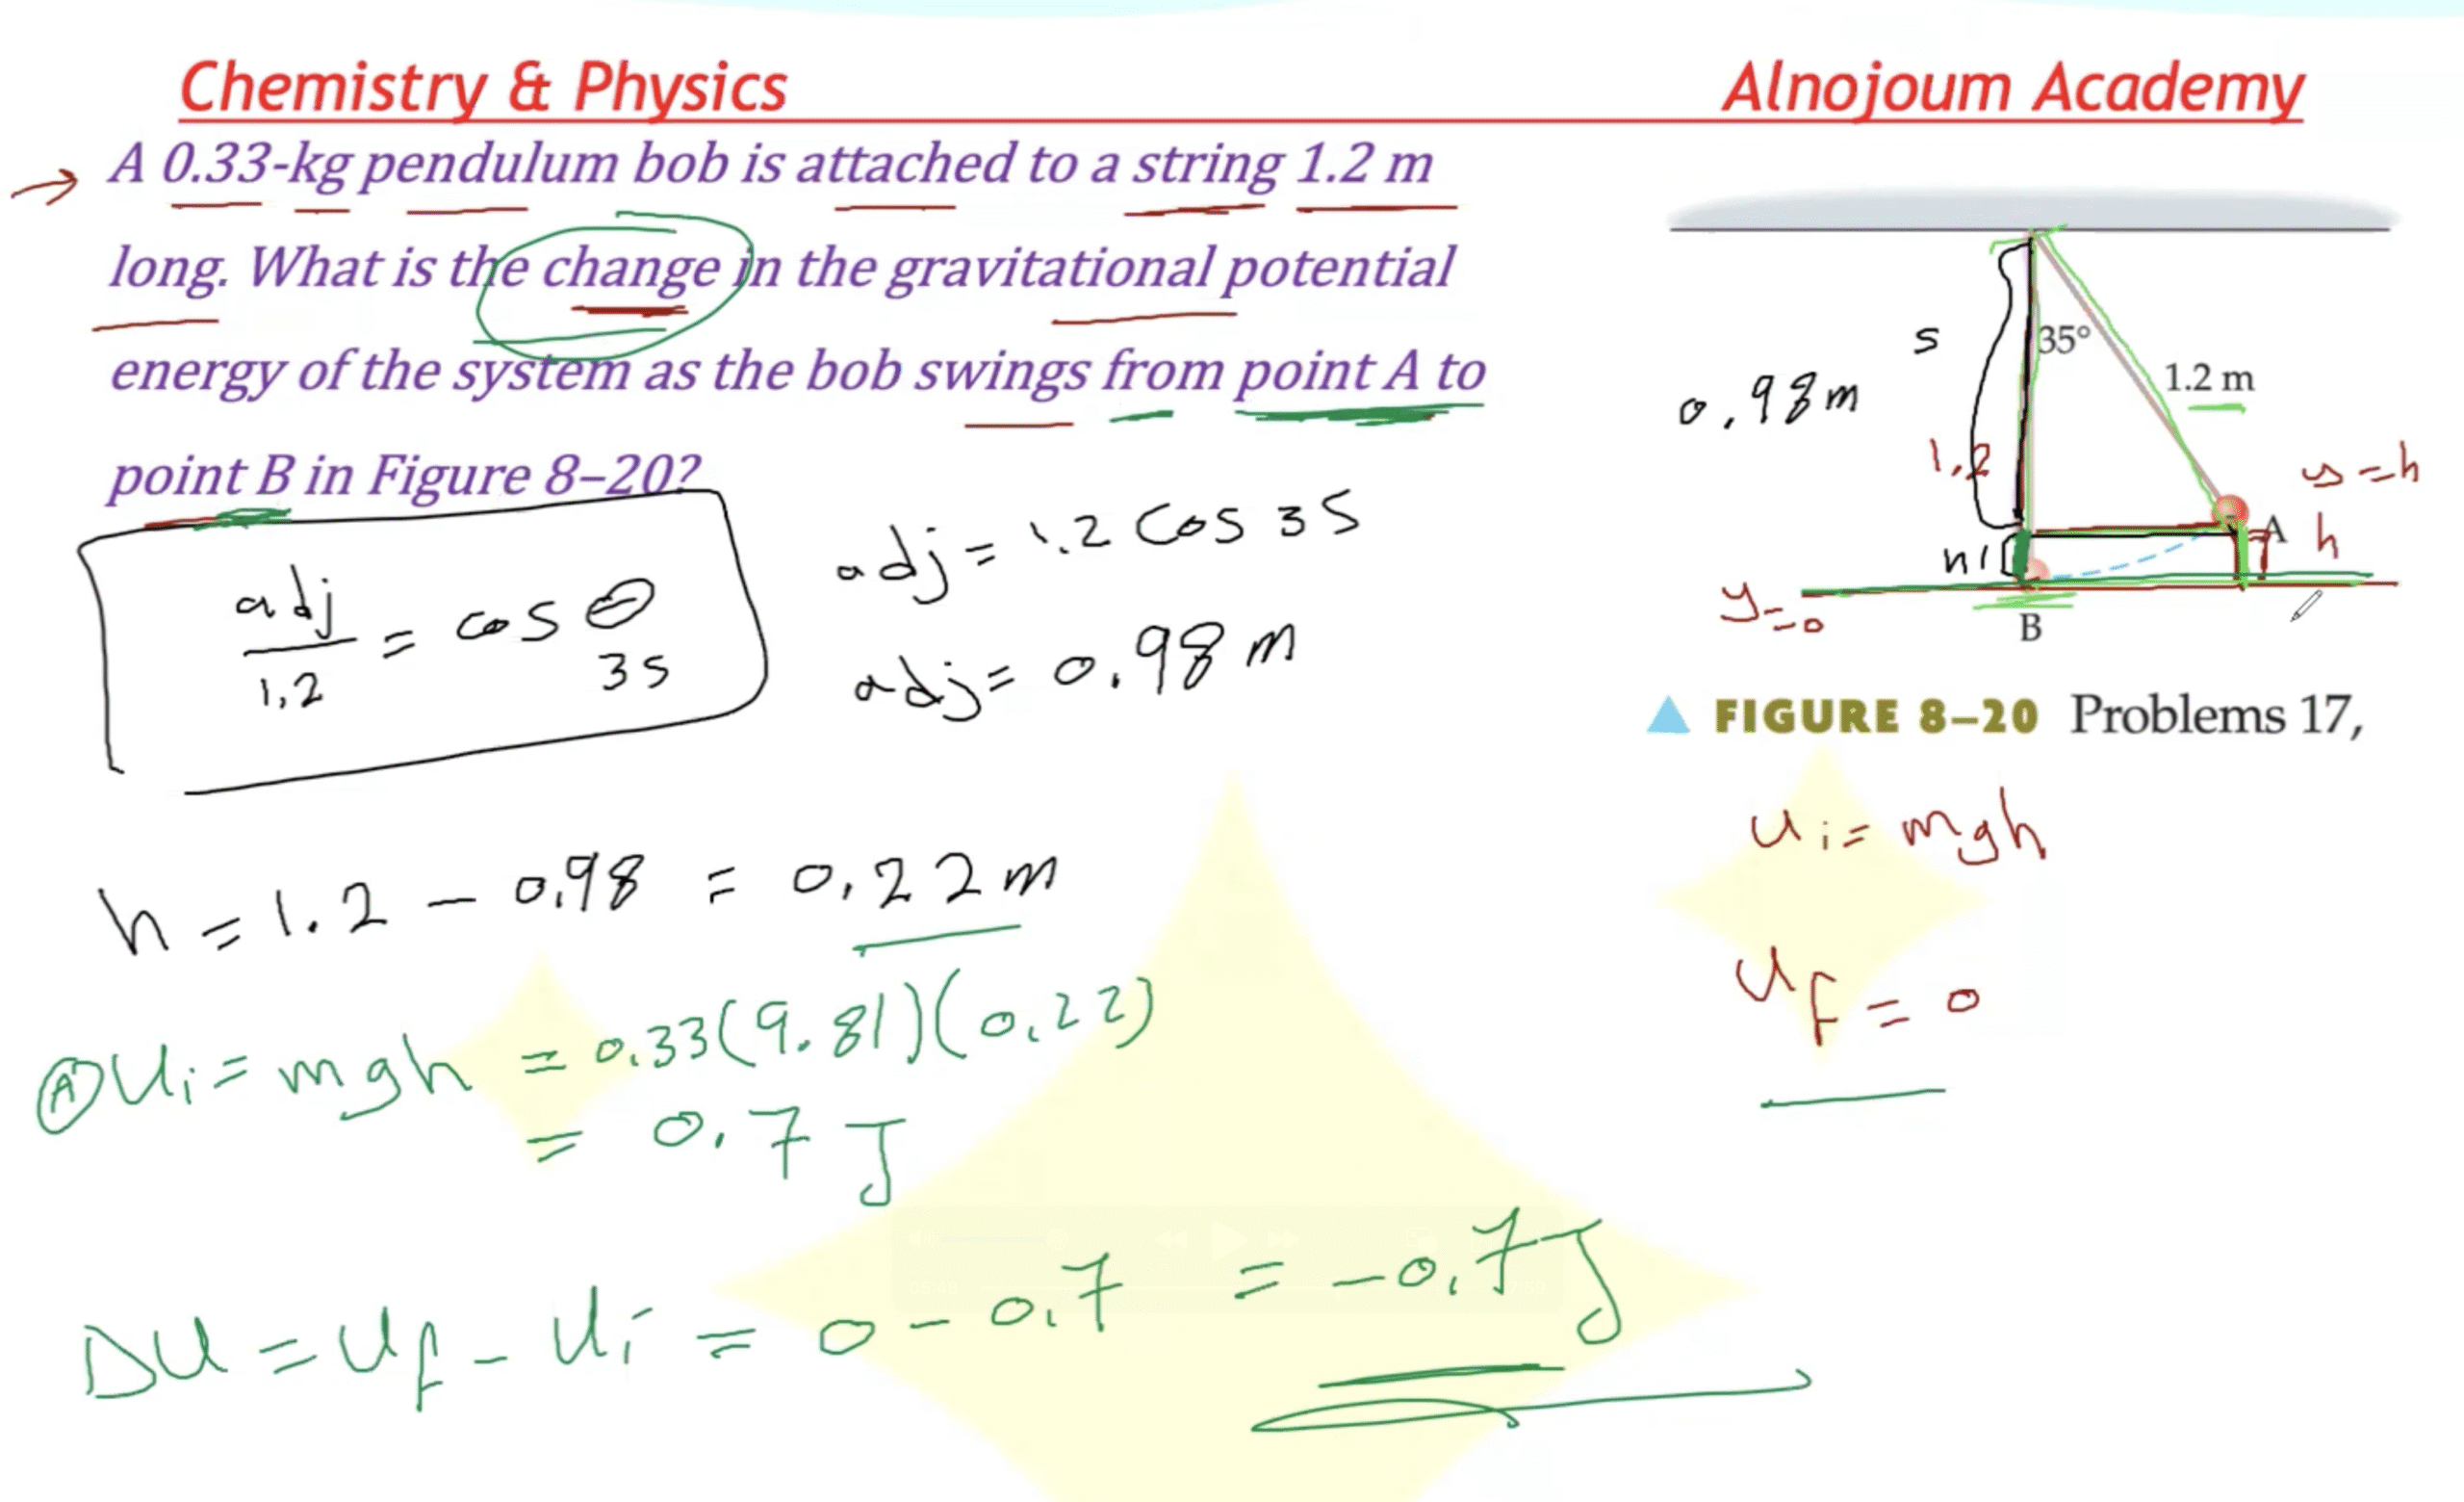 Chemistry & Physics
Alnojoum Academy
A 0.33-kg pendulum bob is attached to a string 1.2 m
long. What is the change in the gravitational potential
energy of the system as the bob swings from point A to
point B in Figure 8–20?
adj/1.2 = cos θ
35
adj = 1.2 cos 35
adj = 0.98 m
h = 1.2 - 0.98 = 0.22 m
A Ui = mgh = 0.33(9.81)(0.22)
= 0.7 J
ΔU = Uf - Ui = 0 - 0.7 = -0.7 J
s
35°
1.2 m
0.98 m
1.2
y = h
A
h
h
y = 0
B
▲ FIGURE 8–20 Problems 17,
Ui = mgh
Uf = 0